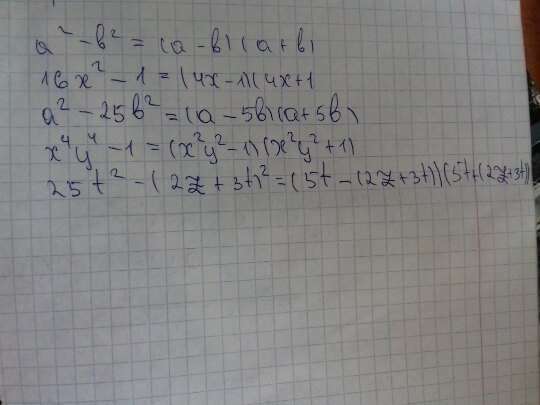 a² - b² = (a - b)(a + b)
16x² - 1 = (4x - 1)(4x + 1
a² - 25b² = (a - 5b)(a + 5b)
x⁴y⁴ - 1 = (x²y² - 1)(x²y² + 1)
25t² - (2z + 3t)² = (5t - (2z + 3t))(5t + (2z + 3t))